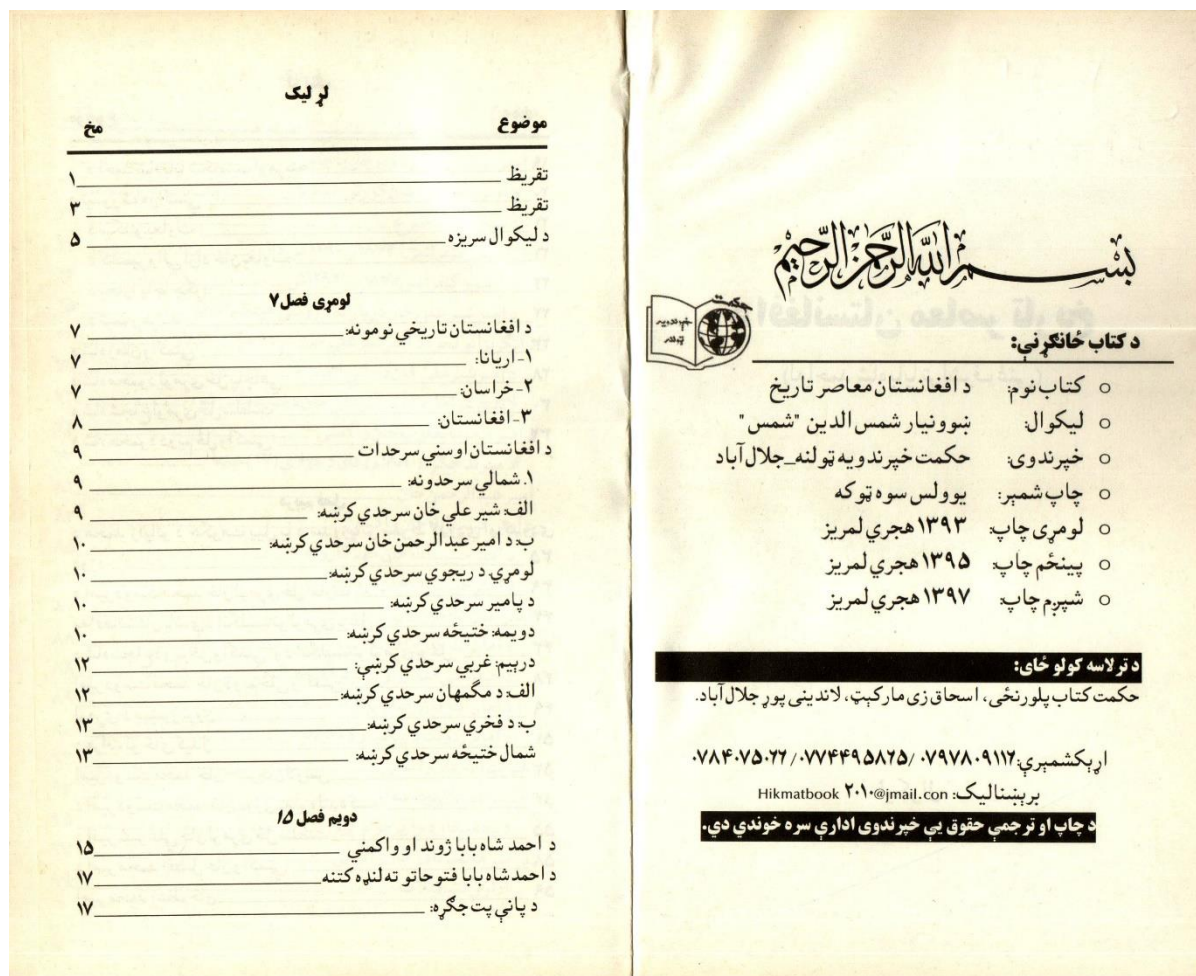 بسم الله الرحمن الرحيم
حکمت
د کتاب ځانګړنې:
○ کتاب نوم: د افغانستان معاصر تاريخ
○ ليکوال: ښوونيار شمس الدين "شمس"
○ خپرندوی: حکمت خپرندويه ټولنه_جلال آباد
○ چاپ شمېر: يوولس سوه ټوکه
○ لومړی چاپ: ۱۳۹۳ هجري لمريز
○ پينځم چاپ: ۱۳۹۵ هجري لمريز
○ شپږم چاپ: ۱۳۹۷ هجري لمريز
د ترلاسه کولو ځای:
حکمت کتاب پلورنځی، اسحاق زی مارکېټ، لاندينی پوړ جلال آباد.
اړيکشمېرې: ۰۷۹۷۸۰۹۱۱۲/ ۰۷۷۴۴۹۵۸۲۵/ ۰۷۸۴۰۷۵۰۲۲
برېښناليک: Hikmatbook ۲۰۱۰@jmail.con
د چاپ او ترجمې حقوق يې خپرندوی ادارې سره خوندي دي.
لړ ليک
موضوع مخ
تقريظ ۱
تقريظ ۳
د ليکوال سريزه ۵
لومړی فصل ۷
د افغانستان تاريخي نومونه: ۷
۱- اريانا: ۷
۲- خراسان: ۷
۳- افغانستان: ۸
د افغانستان اوسني سرحدات ۹
۱. شمالي سرحدونه: ۹
الف: شير علي خان سرحدي کرښه: ۹
ب: د امير عبدالرحمن خان سرحدي کرښه: ۱۰
لومړي. د ريجوي سرحدي کرښه: ۱۰
د پامير سرحدي کرښه: ۱۰
دويمه: ختيځه سرحدي کرښه: ۱۰
درېيم: غربي سرحدي کرښې: ۱۲
الف: د مګمهان سرحدي کرښه: ۱۲
ب: د فخري سرحدي کرښه: ۱۳
شمال ختيځه سرحدي کرښه: ۱۳
دويم فصل ۱۵
د احمد شاه بابا ژوند او واکمني ۱۵
د احمد شاه بابا فتوحاتو ته لنډه کتنه ۱۷
د پاني پت جګړه: ۱۷